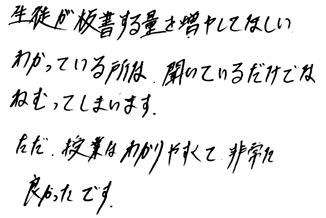 生徒が板書する量を増やしてほしい
わかっている所は、聞いているだけでは
ねむってしまいます.
ただ、授業はわかりやすくて、非常に
良かったです.